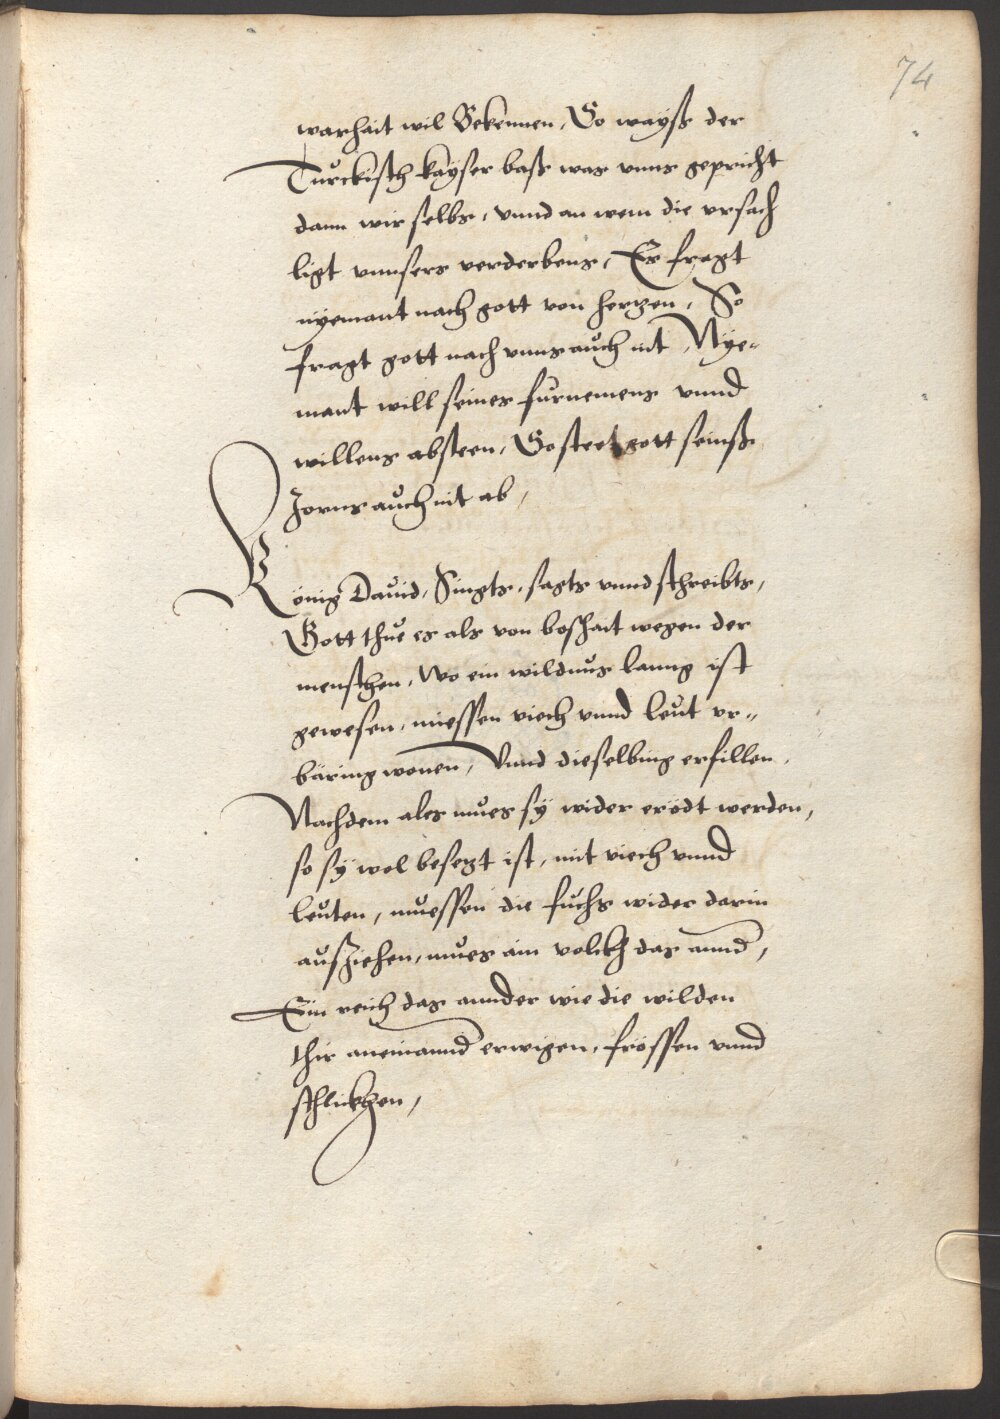 74
warhait wil Bekennen, So wayß der
Turckisch kayser baß was vnns gepricht
dann wir selbs, vnnd an wem die vrsach
ligt vnnsers verderbens, Es fragt
nyemant nach gott von hertzen, So
fragt gott nach vnns auch nit, Nye-
mant will seines fürnemens vnnd
willens absteen, So steet gott seinß
Zorns auch nit ab,
König Dauid, Singts, sagts vnnd schreibts,
Gott thue es als von boshait wegen der
menschen, Wo ein wildnus lanng ist
gewesen, miessen viech vnnd leut vr-
bäring wonen, Vnnd dieselbing erfillen,
Nachdem ales mues sy wider erödt werden,
so sy wol besezt ist, mit viech vnnd
leuten, muessen die fuchs wider darin
aufziehen, mues ain volckh das annd,
Ein reich das annder wie die wilden
thir aneinannd erwigen, frössen vnnd
schlickhen,